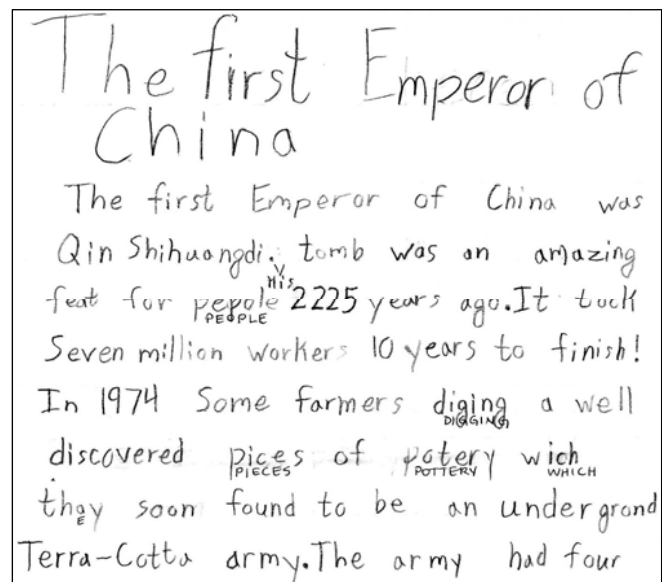 The first Emperor of
China
The first Emperor of China was
Qin Shihuangdi. tomb was an amazing
His
feat for pepole 2225 years ago. It tuck
PEOPLE
Seven million workers 10 years to finish!
In 1974 Some farmers diging a well
DIGGING
discovered pices of potery wich
PIECES POTTERY WHICH
thay soon found to be an undergrond
E
Terra-Cotta army. The army had four